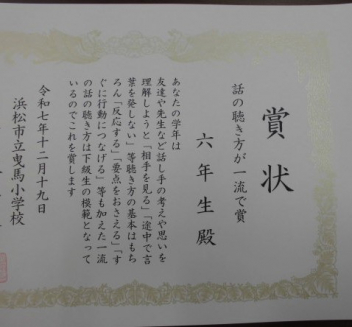 賞状
話の聴き方が一流で賞
六年生殿
あなたの学年は
友達や先生など話し手の考えや思いを
理解しようと「相手を見る」「途中で言
葉を発しない」等聴き方の基本はもち
ろん「反応する」「要点をおさえる」「す
ぐに行動につなげる」等も加えた一流
の話の聴き方は下級生の模範となって
いるのでこれを賞します
令和七年十二月十九日
浜松市立曳馬小学校